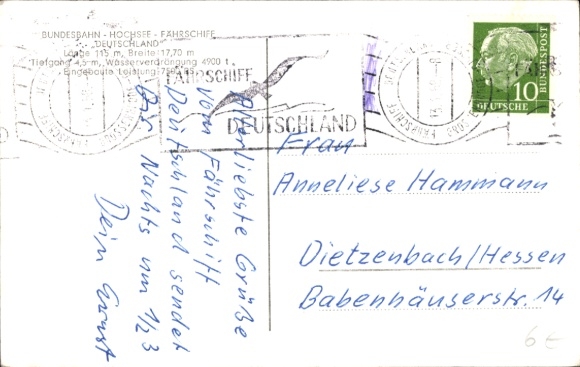 BUNDESBAHN - HOCHSEE - FÄHRSCHIFF
"DEUTSCHLAND"
Länge 115 m, Breite 17,70 m
Tiefgang 4,5 m, Wasserverdrängung 4900 t
Eingebaute Leistung
FÄHRSCHIFF
DEUTSCHLAND
10
DEUTSCHE
BUNDESPOST
Allerliebste Grüße
vom Fährschiff
Deutschland sendet
Dir Nachts um 1/2 3
Dein Ernst
Frau
Anneliese Hammann
Dietzenbach/Hessen
Babenhäuserstr. 14
6€